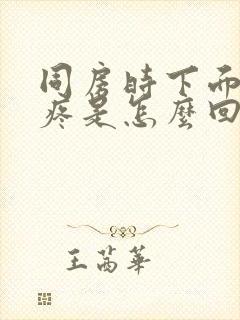 同房時下面
疼是怎麼回
王茜華